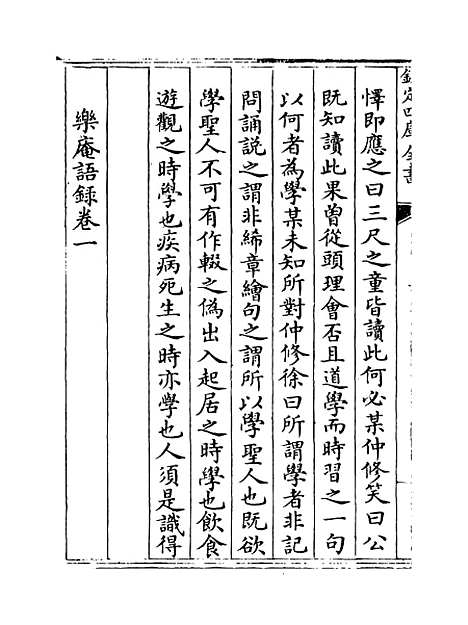 欽定四庫全書
懌即應之曰三尺之童皆讀此何必某仲修笑曰公
既知讀此果曾從頭理會否且道學而時習之一句
以何者為學某未知所對仲修徐曰所謂學者非記
問誦說之謂非絺章繪句之謂所以學聖人也既欲
學聖人不可有作輟之偽出入起居之時學也飲食
遊觀之時學也疾病死生之時亦學也人須是識得
樂庵語録卷一